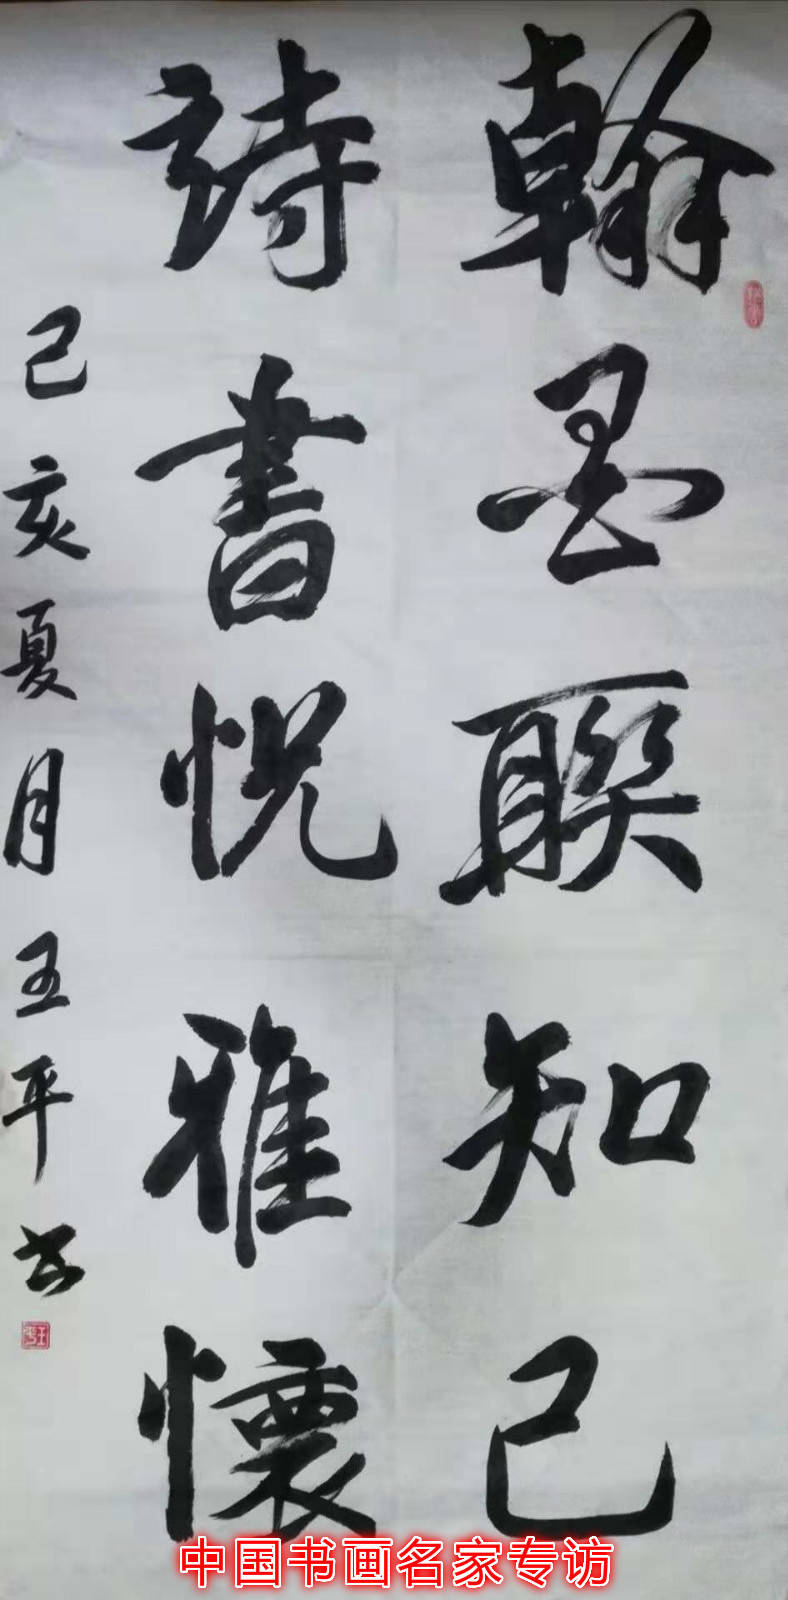 翰墨聯知己
詩書悦雅懷
己亥夏月王平书
中国书画名家专访